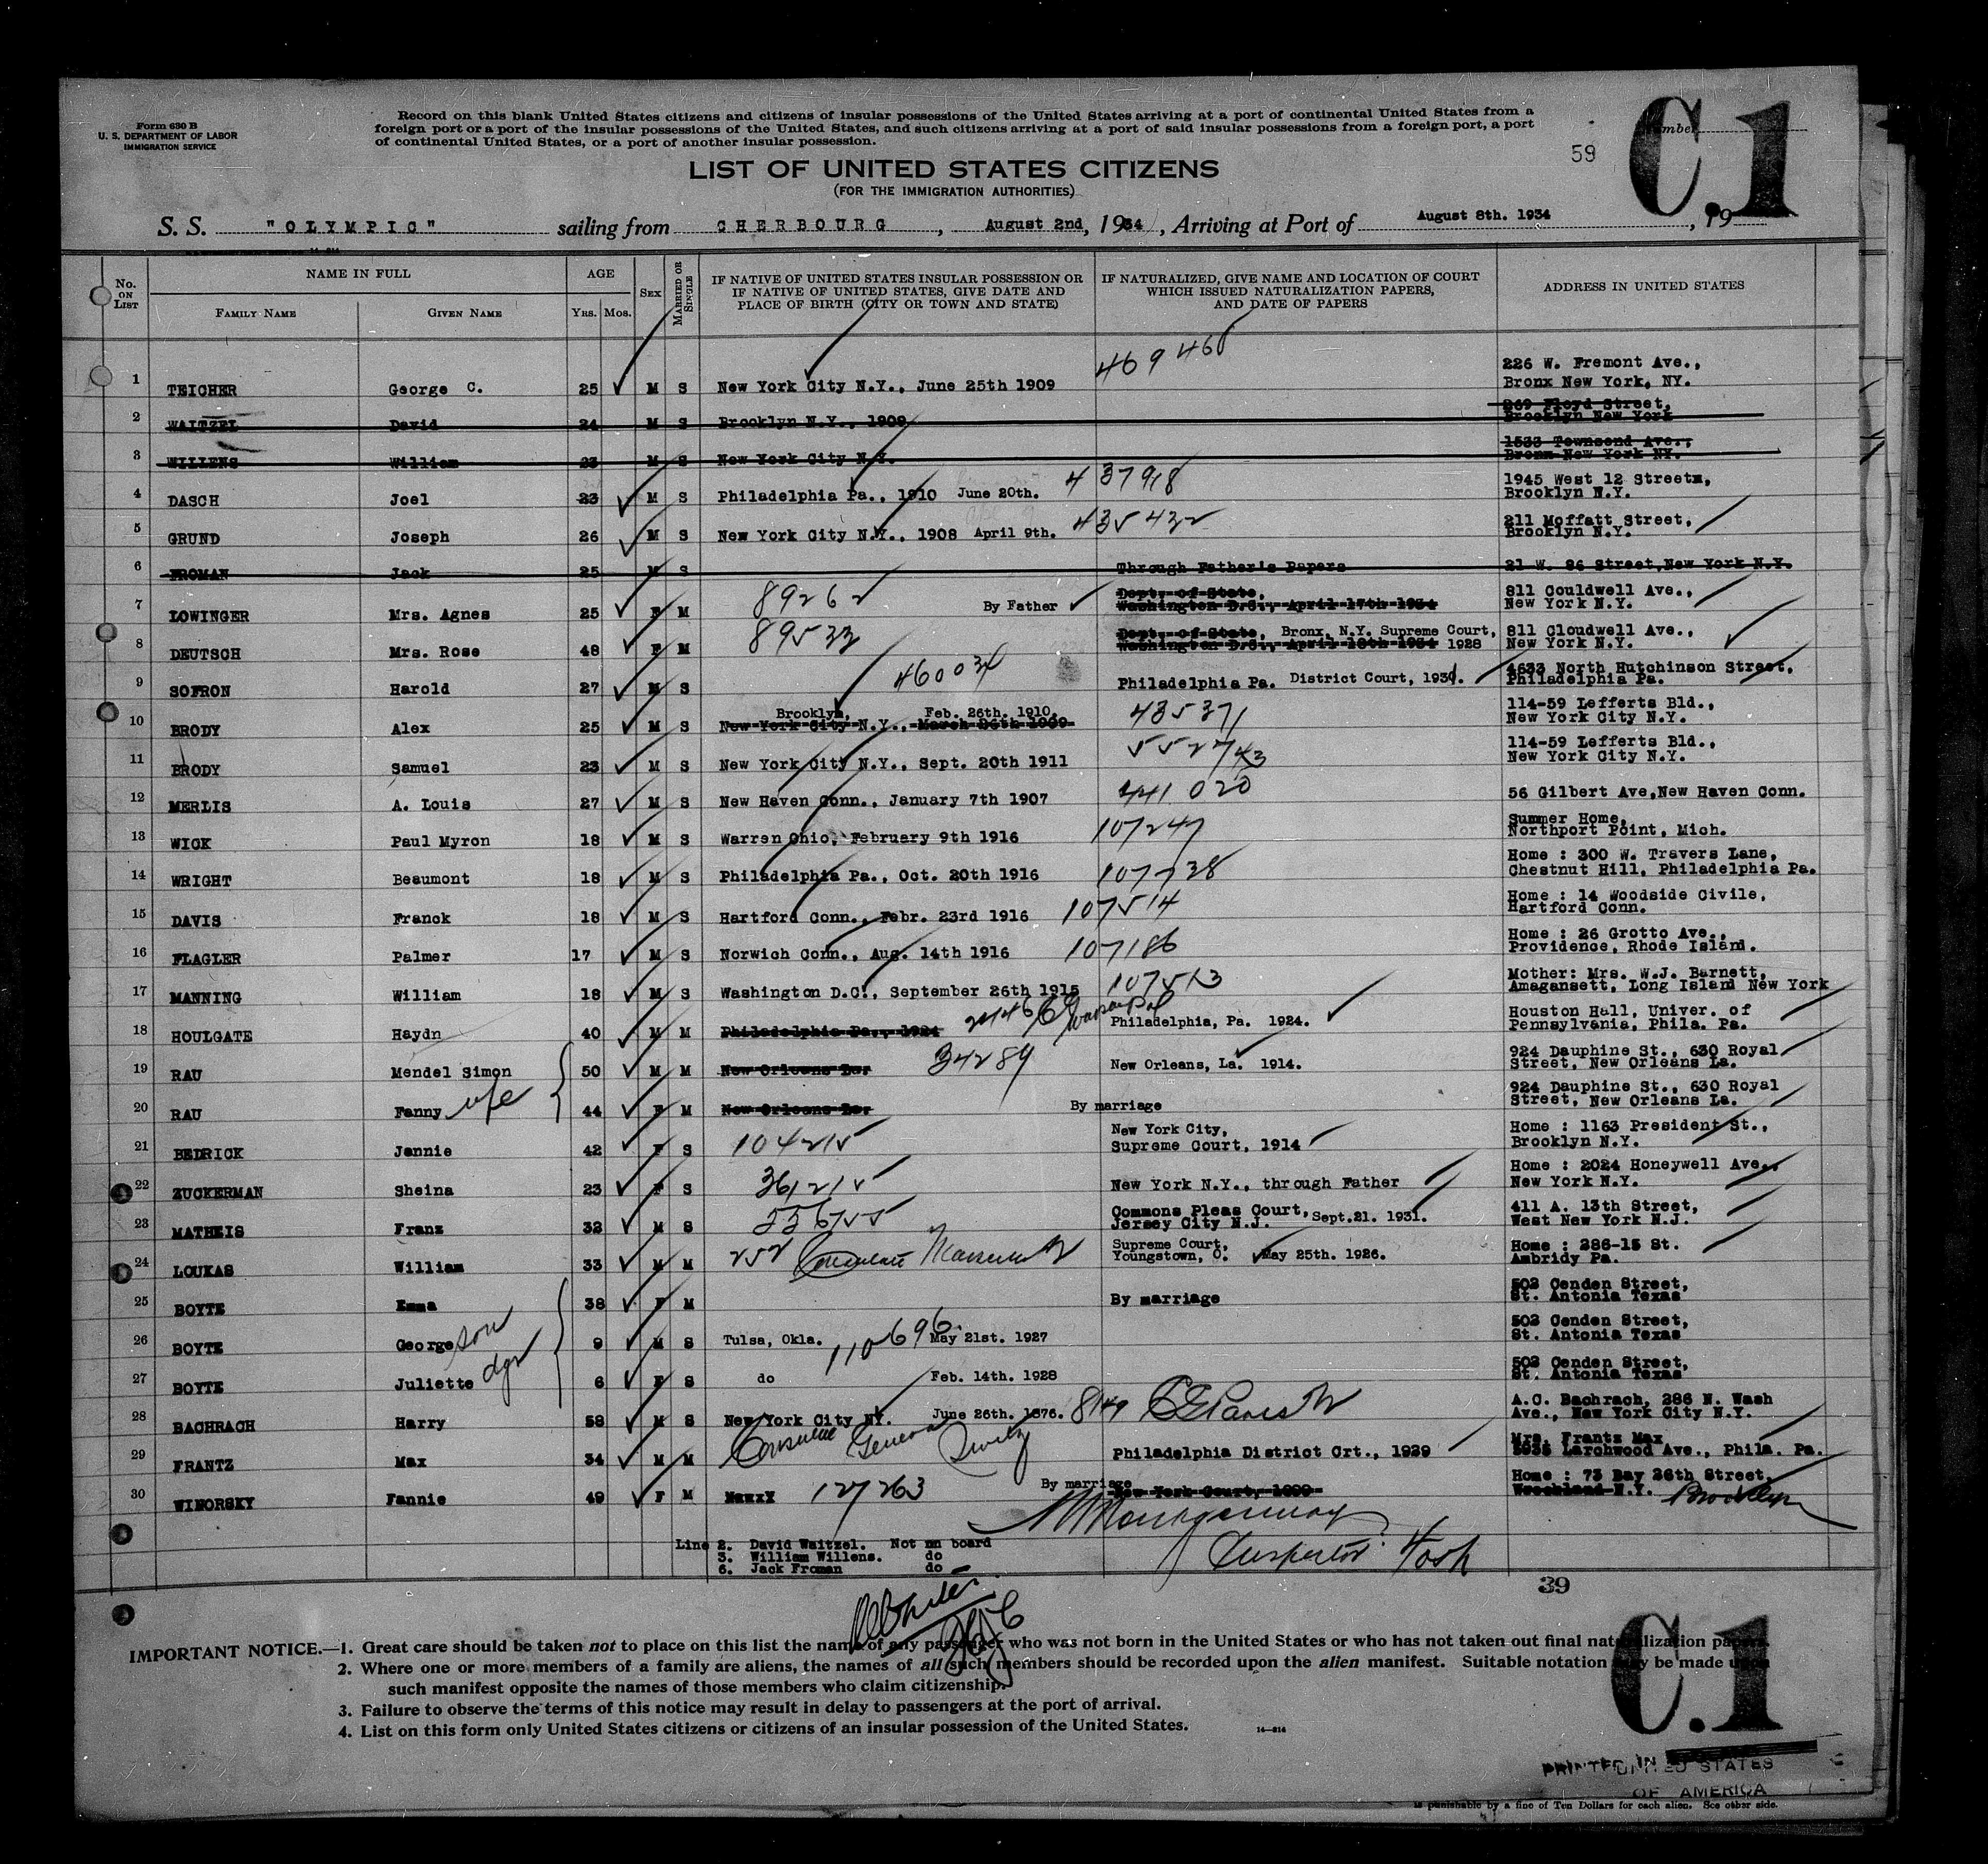 Form 630 B
U. S. DEPARTMENT OF LABOR
IMMIGRATION SERVICE
Record on this blank United States citizens and citizens of insular possessions of the United States arriving at a port of continental United States from a
foreign port or a port of the insular possessions of the United States, and such citizens arriving at a port of said insular possessions from a foreign port, a port
of continental United States, or a port of another insular possession.
C1
59
LIST OF UNITED STATES CITIZENS
(FOR THE IMMIGRATION AUTHORITIES)
S. S. "OLYMPIC" sailing from CHERBOURG, August 2nd, 1934, Arriving at Port of August 8th. 1934, 19
No. ON LIST NAME IN FULL FAMILY NAME GIVEN NAME AGE YRS. MOS. SEX MARRIED OR SINGLE IF NATIVE OF UNITED STATES INSULAR POSSESSION OR IF NATIVE OF UNITED STATES, GIVE DATE AND PLACE OF BIRTH (CITY OR TOWN AND STATE) IF NATURALIZED, GIVE NAME AND LOCATION OF COURT WHICH ISSUED NATURALIZATION PAPERS, AND DATE OF PAPERS ADDRESS IN UNITED STATES
1 TEICHER George C. 25 M S New York City N.Y., June 25th 1909 469460 226 W. Fremont Ave., Bronx New York, NY.
2 WAITZEL David 24 M S Brooklyn N.Y., 1909 269 Floyd Street, Brooklyn New York
3 WILLENS William 23 M S New York City N.Y. 1533 Townsend Ave., Bronx New York NY.
4 DASCH Joel 23 M S Philadelphia Pa., 1910 June 20th. 437918 1945 West 12 Streetx, Brooklyn N.Y.
5 GRUND Joseph 26 M S New York City N.Y., 1908 April 9th. 435432 211 Moffatt Street, Brooklyn N.Y.
6 FROMAN Jack 25 M S Through Father's Papers 21 W. 86 Street, New York N.Y.
7 LOWINGER Mrs. Agnes 25 F M 89262 By Father Dept. of State, Washington D.C., April 17th 1934 811 Couldwell Ave., New York N.Y.
8 DEUTSCH Mrs. Rose 48 F M 89533 Dept. of State, Bronx, N.Y. Supreme Court, Washington D.C., April 18th 1934 1928 811 Cloudwell Ave., New York N.Y.
9 SOFRON Harold 27 M S 460034 Philadelphia Pa. District Court, 1930. 4633 North Hutchinson Street, Philadelphia Pa.
10 BRODY Alex 25 M S Brooklyn, Feb. 26th. 1910, New York City N.Y., March 26th 1909 435371 114-59 Lefferts Bld., New York City N.Y.
11 BRODY Samuel 23 M S New York City N.Y., Sept. 20th 1911 552743 114-59 Lefferts Bld., New York City N.Y.
12 MERLIS A. Louis 27 M S New Haven Conn., January 7th 1907 441020 56 Gilbert Ave, New Haven Conn.
13 WICK Paul Myron 18 M S Warren Ohio, February 9th 1916 107247 Summer Home, Northport Point, Mich.
14 WRIGHT Beaumont 18 M S Philadelphia Pa., Oct. 20th 1916 107738 Home : 300 W. Travers Lane, Chestnut Hill, Philadelphia Pa.
15 DAVIS Franck 18 M S Hartford Conn., Febr. 23rd 1916 107514 Home : 14 Woodside Civile, Hartford Conn.
16 FLAGLER Palmer 17 M S Norwich Conn., Aug. 14th 1916 107186 Home : 26 Grotto Ave., Providence, Rhode Island.
17 MANNING William 18 M S Washington D.C., September 26th 1915 107513 Mother: Mrs. W.J. Barnett, Amagansett, Long Island New York
18 HOULGATE Haydn 40 M M Philadelphia Pa., 1924 Philadelphia, Pa. 1924. Houston Hall, Univer. of Pennsylvania, Phila. Pa.
19 RAU Mendel Simon 50 M M New Orleans 34289 New Orleans, La. 1914. 924 Dauphine St., 630 Royal Street, New Orleans La.
20 RAU Fanny wife 44 F M New Orleans By marriage 924 Dauphine St., 630 Royal Street, New Orleans La.
21 BEDRICK Jennie 42 F S 104215 New York City, Supreme Court, 1914 Home : 1163 President St., Brooklyn N.Y.
22 ZUCKERMAN Sheina 23 F S 361215 New York N.Y., through Father Home : 2024 Honeywell Ave., New York N.Y.
23 MATHEIS Franz 32 M S 556755 Commons Pleas Court, Jersey City N.J. Sept.21. 1931. 411 A. 13th Street, West New York N.J.
24 LOUKAS William 33 M M 252 Consulate Supreme Court, Youngstown, O. May 25th. 1926. Home : 286-15 St. Ambridy Pa.
25 BOYTE Emma 38 F M By marriage 502 Cenden Street, St. Antonia Texas
26 BOYTE George son 9 M S Tulsa, Okla. 110696 May 21st. 1927 502 Cenden Street, St. Antonia Texas
27 BOYTE Juliette dgr 6 F S do Feb. 14th. 1928 502 Cenden Street, St. Antonia Texas
28 BACHRACH Harry 58 M S New York City NY. June 26th. 1876. 8149 A.C. Bachrach, 286 N. Wash Ave., New York City N.Y.
29 FRANTZ Max 34 M M Philadelphia District Crt., 1929 Mrs. Frantz Max Larchwood Ave., Phila. Pa.
30 WINORSKY Fannie 49 F M 127263 By marriage New York Court, 1899 Home : 73 Bay 26th Street, N.Y. Brooklyn
Montgomery
Inspector
Line 2. David Waitzel. Not on board
3. William Willens. do
6. Jack Froman do
39
IMPORTANT NOTICE.—1. Great care should be taken not to place on this list the name of any passenger who was not born in the United States or who has not taken out final naturalization papers.
2. Where one or more members of a family are aliens, the names of all such members should be recorded upon the alien manifest. Suitable notation may be made upon
such manifest opposite the names of those members who claim citizenship.
3. Failure to observe the terms of this notice may result in delay to passengers at the port of arrival.
4. List on this form only United States citizens or citizens of an insular possession of the United States.
14—814
C.1
PRINTED IN UNITED STATES
OF AMERICA
is punishable by a fine of Ten Dollars for each alien. See other side.